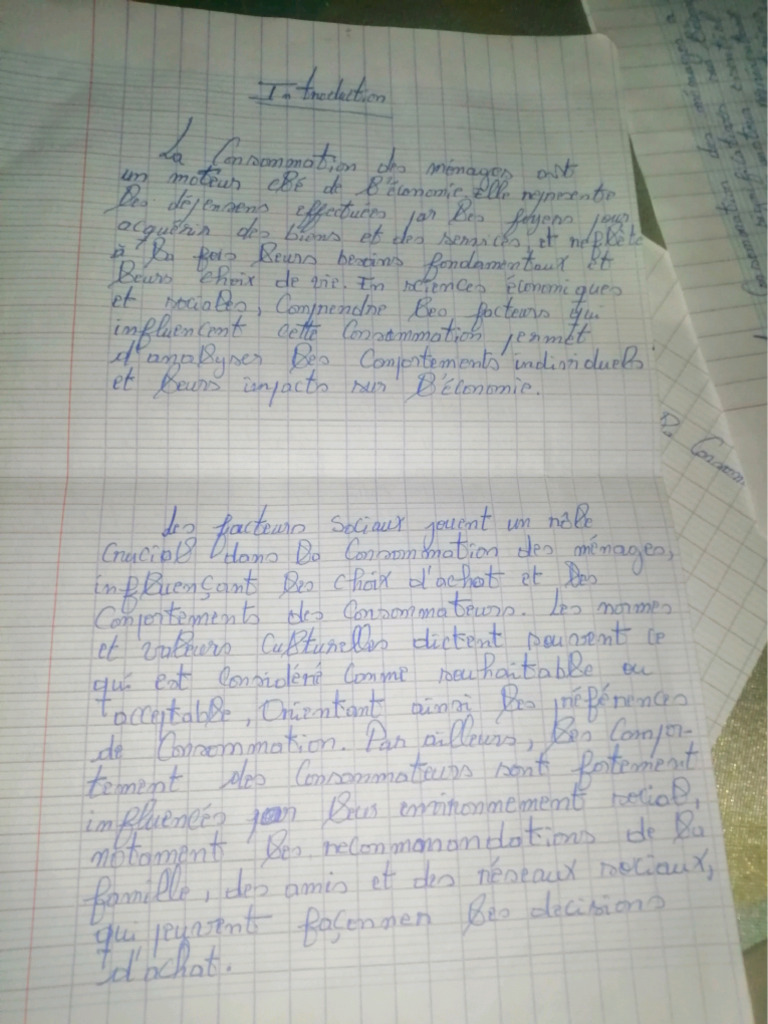 Introduction
La Consommation des ménages est
un moteur clé de l'économie. Elle represente
les dépenses effectuées par les foyers pour
acquérir des biens et des services, et reflète
à la fois leurs besoins fondamentaux et
leurs choix de vie. En sciences économiques
et sociales, Comprendre les facteurs qui
influencent cette Consommation permet
d'analyser les Comportements individuels
et leurs impacts sur l'économie.
Les facteurs Sociaux jouent un rôle
Crucial dans la Consommation des ménages,
influençant les choix d'achat et les
Comportements des Consommateurs. Les normes
et valeurs Culturelles dictent souvent ce
qui est Considéré Comme souhaitable ou
acceptable, Orientant ainsi les préférences
de Consommation. Par ailleurs, les Compor-
tement des Consommateurs sont fortement
influencés par leur environnement social,
notament les recommanandations de la
famille, des amis et des réseaux sociaux,
qui peuvent façonner les decisions
d'achat.
la Consom.